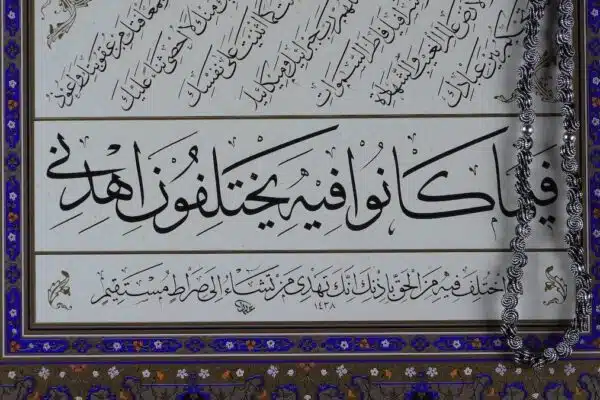 من عقوبتك واعوذ
منك لا احصي ثناء عليك
كما اثنيت على نفسك
اللهم رب جبرائيل وميكائيل
سرافيل فاطر السموات
الارض عالم الغيب والشهادة
بين عبادك
فيما كانوا فيه يختلفون اهدني
اختلف فيه من الحق باذنك انك تهدي من تشاء الى صراط مستقيم
١٤٣٨